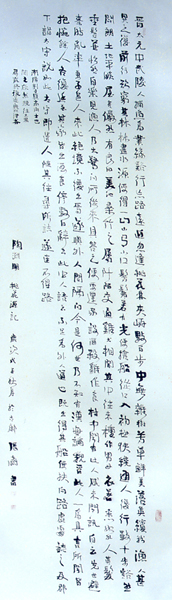 晉太元中武陵人捕魚為業緣溪行忘路之遠近忽逢桃花林夾岸數百步中無雜樹芳草鮮美落英繽紛漁人甚
異之復前行欲窮其林林盡水源便得一山山有小口髣髴若有光便捨船從口入初極狹纔通人復行數十步豁然
開朗土地平曠屋舍儼然有良田美池桑竹之屬阡陌交通雞犬相聞其中往來種作男女衣著悉如外人黃髮
垂髫並怡然自樂見漁人乃大驚問所從來具答之便要還家設酒殺雞作食村中聞有此人咸來問訊自云先世避
秦時亂率妻子邑人來此絕境不復出焉遂與外人間隔問今是何世乃不知有漢無論魏晉此人一一為具言所聞皆
歎惋餘人各復延至其家皆出酒食停數日辭去此中人語云不足為外人道也既出得其船便扶向路處處誌之及郡
下詣太守說如此太守即遣人隨其往尋向所誌遂迷不得路
陶淵明 桃花源記